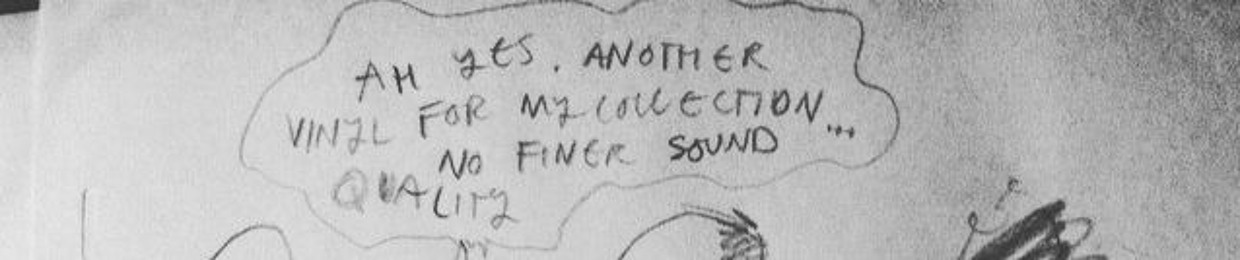 AH YES. ANOTHER
VINYL FOR MY COLLECTION...
NO FINER SOUND
QUALITY